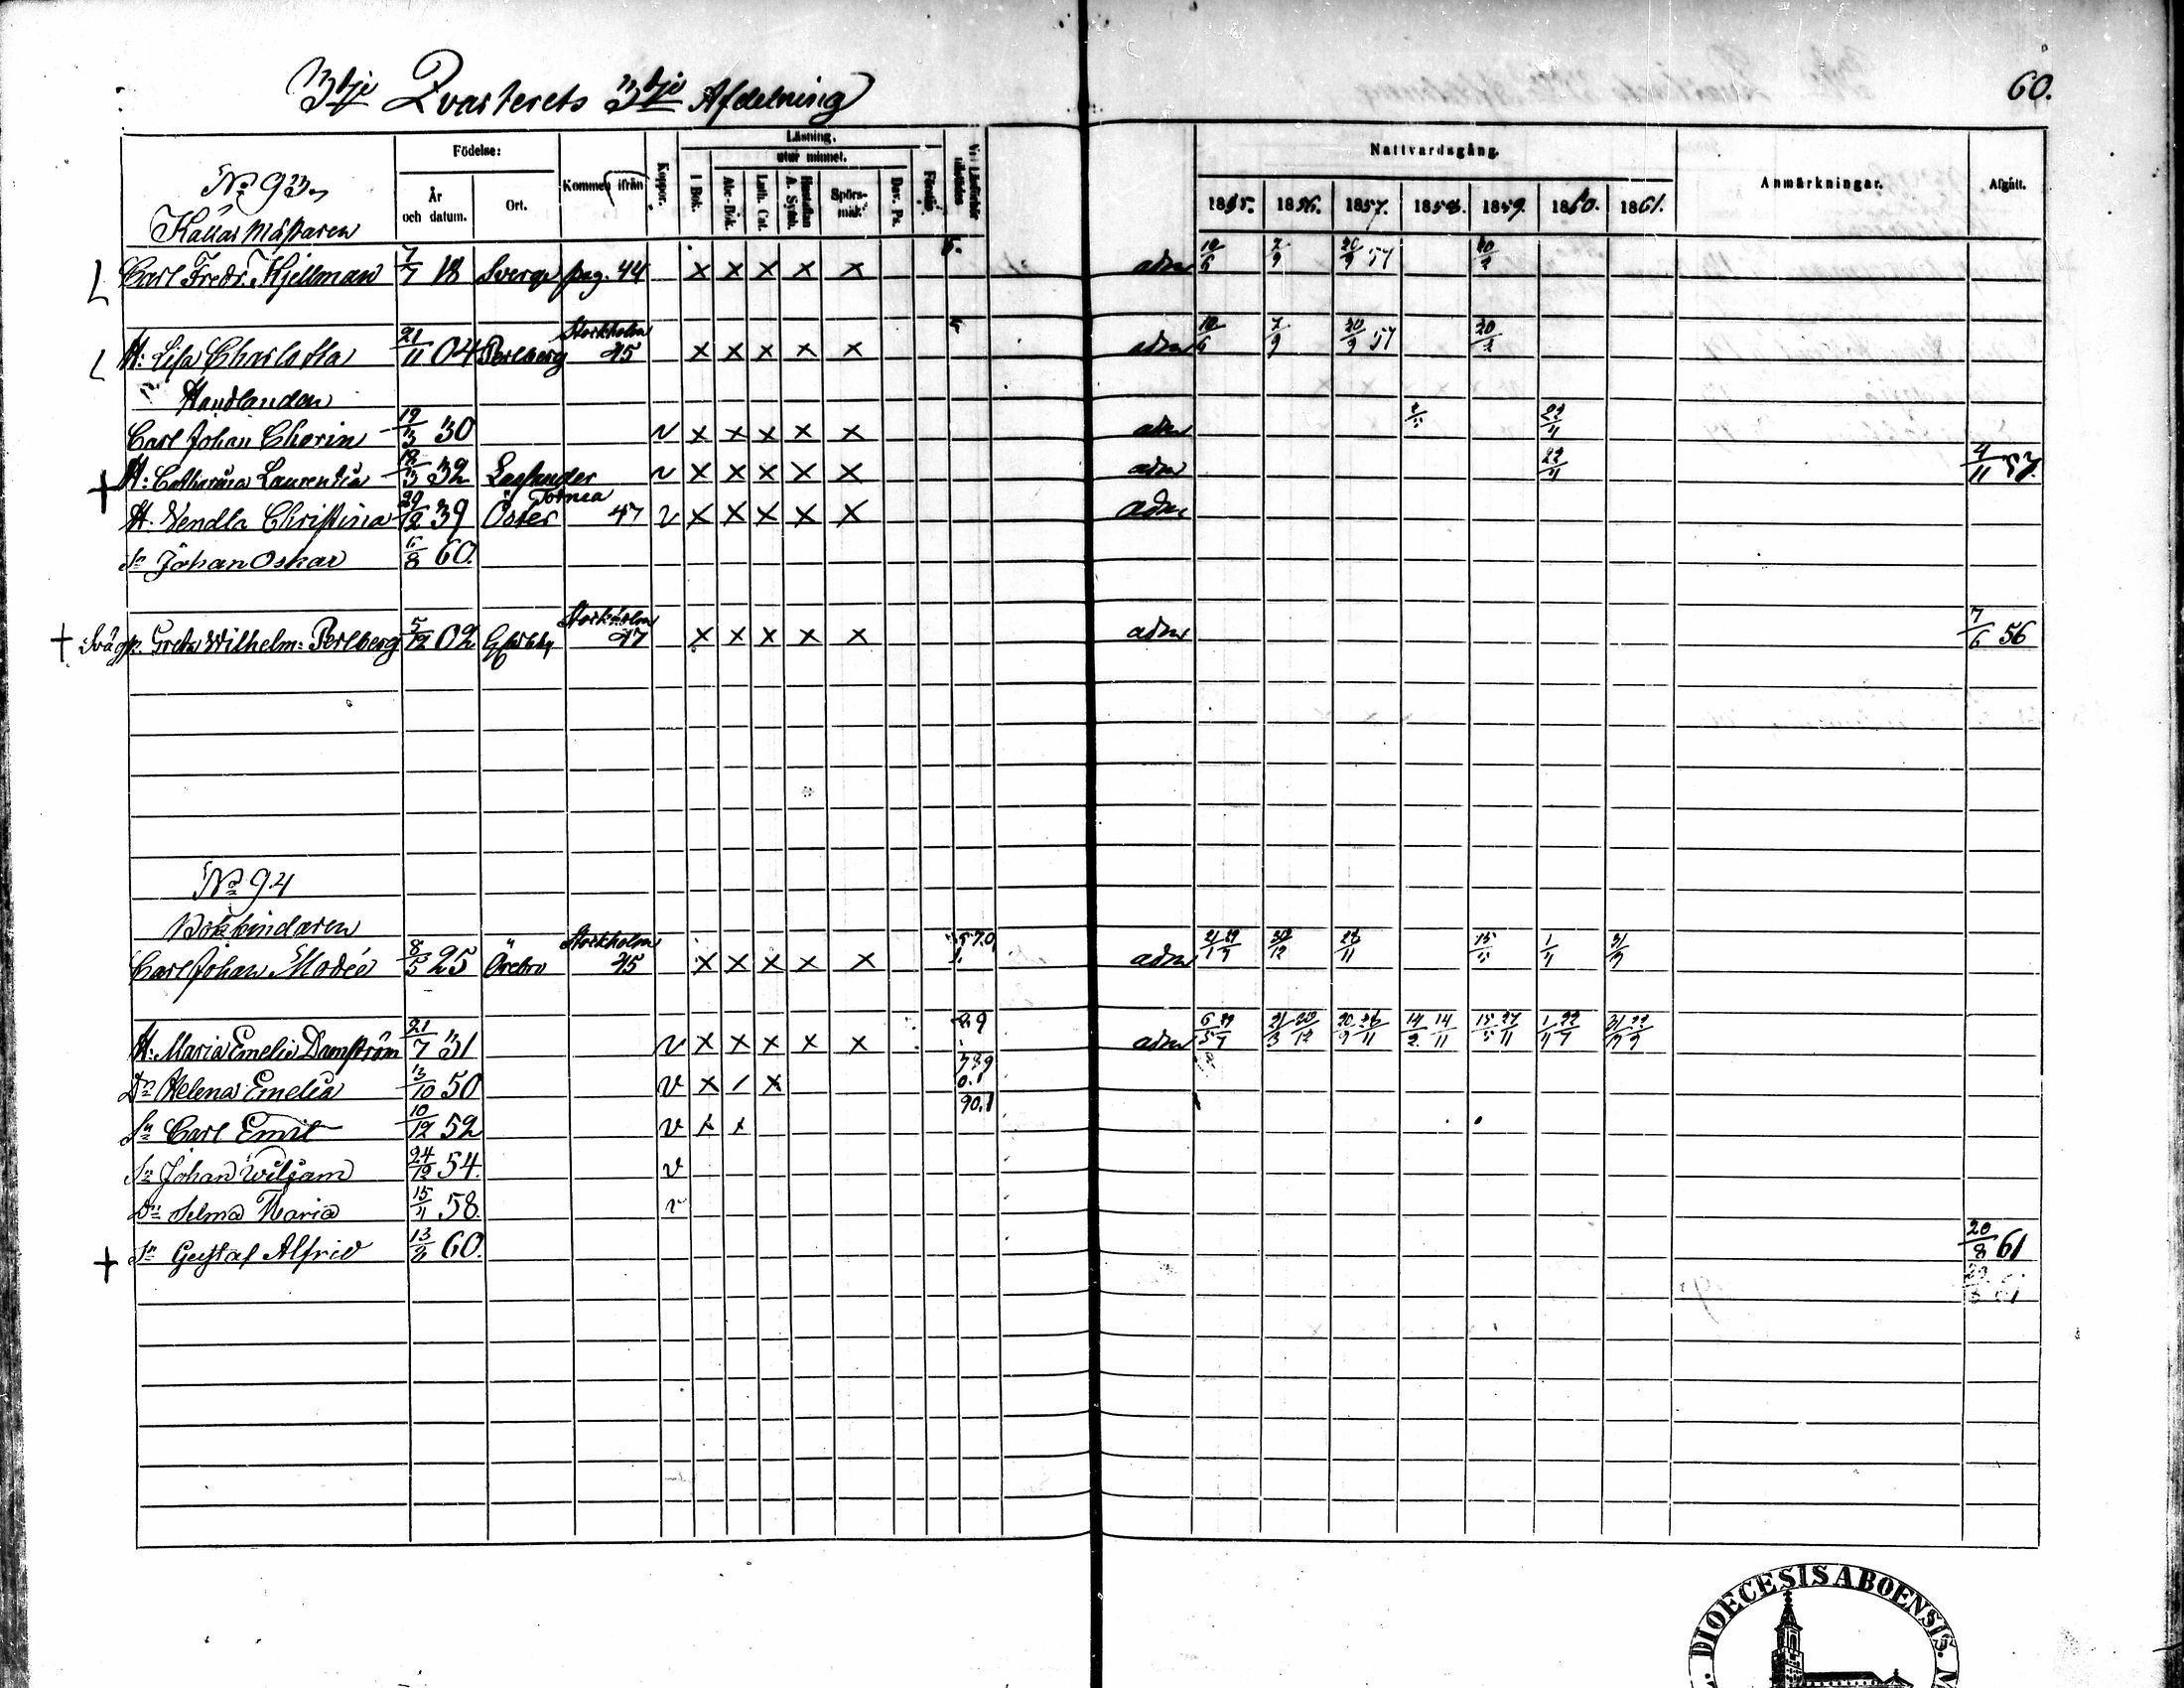 3dje Qvarterets 3dje Afdelning
60.
Födelse:
År och datum.
Ort.
Kommen ifrån
Koppor.
Läsning.
utur minnet.
I Bok.
Abc-Bok.
Luth. Cat.
Hustaflan A. Symb.
Spörs-mål.
Dav. Ps.
Förstår.
Vid Läsförhör tillstädes
Nattvardsgång.
1855. 1856. 1857. 1858. 1859. 1860. 1861.
Anmärkningar.
Afgått.
No 93.
Källarmästaren
Carl Fredr. Kjellman 7/7 18 Sverge pag. 44 x x x x x adm 10/6 7/9 20/9 57 20/2
H: Lisa Charlotta 21/11 04 Perlberg Stockholm 45 x x x x x adm 10/6 7/9 20/9 57 20/2
Handlanden
Carl Johan Chorin 19/3 30 v x x x x x adm 22/11
H: Catharina Laurentia 18/3 32 Lagfander v x x x x x adm 22/11 4/11 57.
H. Vendla Christina 29/12 39 Öster Tornea 47 v x x x x x adm
Sn Johan Oskar 6/8 60.
+ Svägn. Greta Wilhelm: Perlberg 5/12 02 Stockholm 47 x x x x x adm 7/6 56
No 94
Bokbindaren
Carl Johan Modée 8/5 25 Örebro Stockholm 45 x x x x x adm 30/12 23/11 15/5 1/4 31/7
H: Maria Emelia Damström 21/7 31 v x x x x x adm 14/2 14/11 15/5 27/11
Dr Helena Emelia 13/10 50 v x / x
Sn Carl Emil 10/12 52 v x x 90.1
Sn Johan Wiliam 24/12 54. v
Dr Selma Maria 15/11 58. v
+ Sn Gustaf Alfrid 13/2 60. 20/8 61
DIOECESIS ABOENSIS